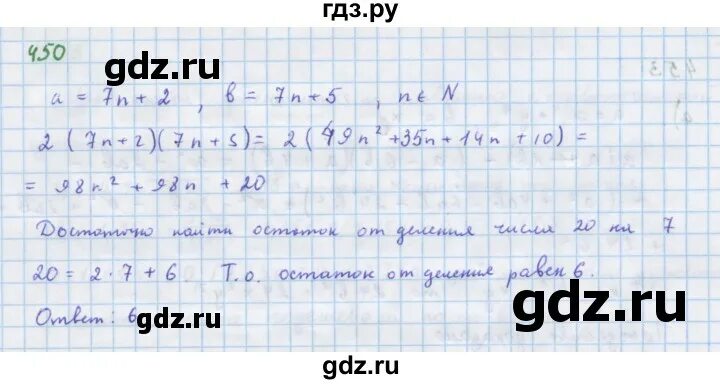 гдз.ру
450
gdz.ru
a = 7n + 2 , b = 7n + 5 , n ∈ N
2 (7n+2)(7n+5) = 2 (49n² + 35n + 14n + 10) =
= 98n² + 98n + 20
Достаточно найти остаток от деления числа 20 на 7
20 = 2 · 7 + 6 Т.о. остаток от деления равен 6.
gdz.ru
Ответ: 6
gdz.ru
gdz.ru